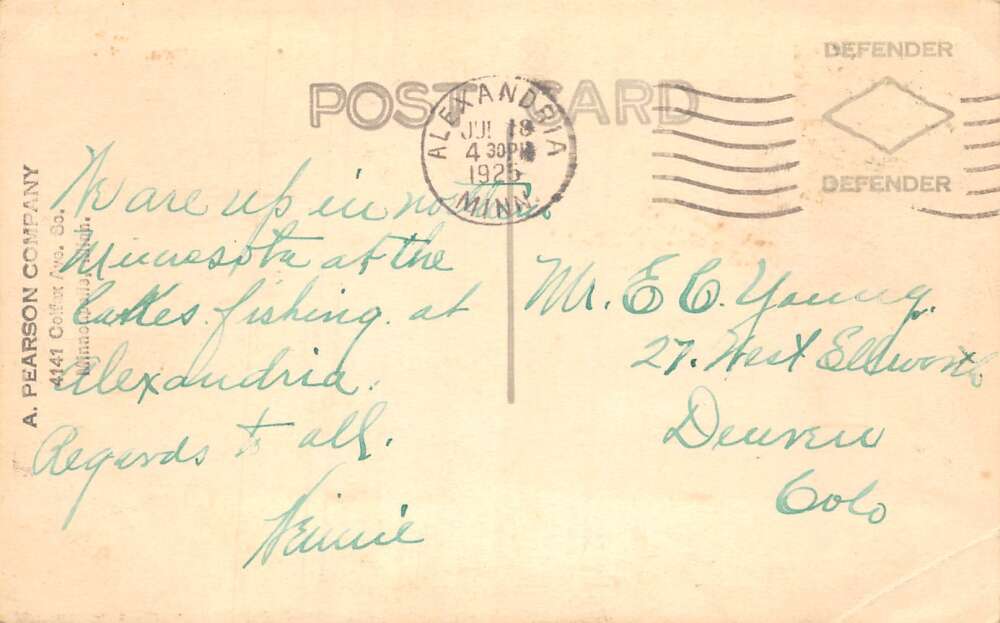 DEFENDER
POST CARD
ALEXANDRIA
JUL 18
4 30PM
1925
MINN.
DEFENDER
A. PEARSON COMPANY
4141 Colfax Ave. So.
Minneapolis, Minn.
We are up in northern
Minnesota at the
lakes fishing at
Alexandria.
Regards to all.
Mr. E C. Young.
27. West Ellsworth
Denver
Colo